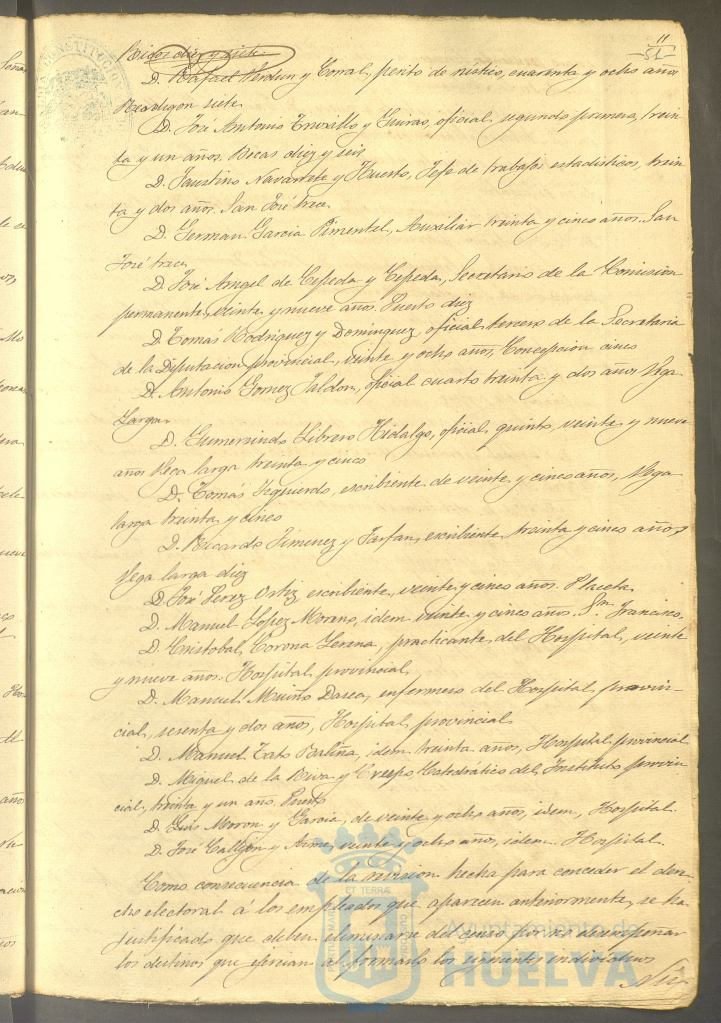 11
51
Bicos diez y siete
D. Rafael Verdun y Corral, perito de rústico, cuarenta y ocho años
siete
D. José Antonio Truxillo y Guiras, oficial segundo primero, trein
ta y un años. Bocas diez y seis
D. Faustino Navarrete y Huerto, Jefe de trabajos estadisticos, trein
ta y dos años. San José trece
D. German Garcia Pimentel, Auxiliar treinta y cinco años. San
José trece
D. José Amgel de Cepeda y Cepeda, Secretario de la Comision
permanente, veinte y nueve años. Puerto diez
D. Tomás Rodriguez y Dominguez oficial tercero de la Secretaria
de la Diputacion provincial, veinte y ocho años, Concepcion cinco
D. Antonio Gomez Jaldon, oficial cuarto treinta y dos años Vega
Larga
D. Gumersindo Librero Hidalgo, oficial quinto, veinte y nueve
años Vega larga treinta y cinco
D. Tomás Izquierdo, escribiente de veinte y cinco años, Vega
larga treinta y cinco
D. Ricardo Jimenez y Farfan, escribiente treinta y cinco años,
Vega larga diez
D. José Perez Ortiz escribiente, veinte y cinco años. Placeta
D. Manuel Lopez Moreno, idem veinte y cinco años. San Francisco.
D. Cristobal Corona Serena, practicante, del Hospital, veinte
y nueve años. Hospital provincial,
D. Manuel Muiño Dasea, enfermero del Hospital provin-
cial, sesenta y dos años, Hospital provincial
D. Manuel Tato Paliña, idem treinta años, Hospital provincial
D. Miguel de la Riva y Crespo Catedrático del Instituto provin
cial, treinta y un año. Puerto
D. Luis Moron y Garcia, de veinte y ocho años, idem, Hospital.
D. José Callejon y Asme, veinte y ocho años, idem Hospital.
Como consecuencia de la revision hecha para conceder el dere-
cho electoral á los empleados que aparecen anteriormente, se ha
justificado que deben eliminarse del censo por no desempeñar
los destinos que ejercian al formarlo los siguientes individuos
Ayuntamiento de
HUELVA